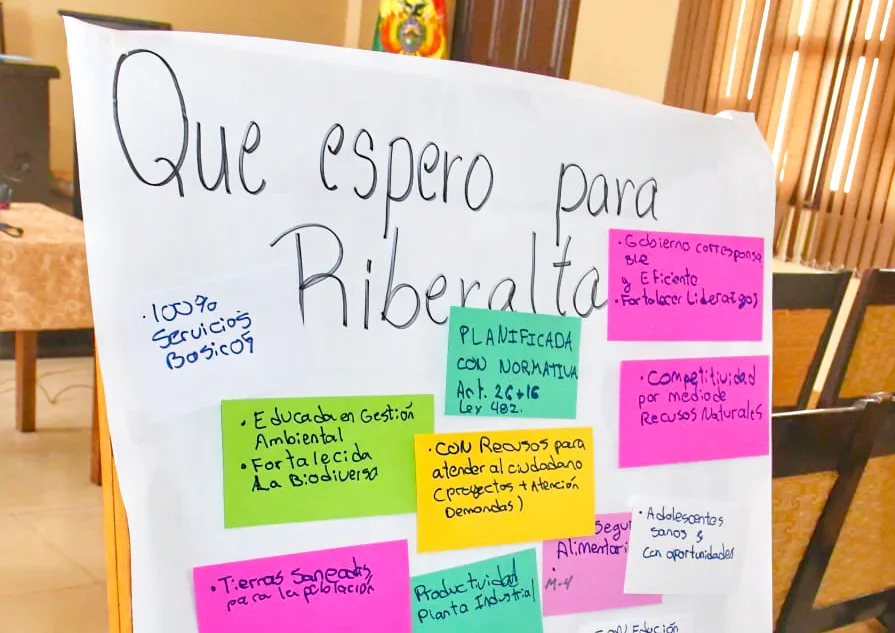 Que espero para
Riberalta
· Gobierno corresponsa
ble
y Eficiente
· Fortalecer Liderazgos
· 100%
Servicios
Basicos
PLANIFICADA
CON NORMATIVA
Act. 26+16
Ley 482.
· Competitividad
por medio de
Recusos Naturales
· Educada en Gestión
Ambiental
· Fortalecida
La Biodiversa
· CON Recusos para
atender al ciudadano
(proyectos + Atención
Demandas)
Segur
Alimentari
M-4
· Adolescentes
sanos y
con oportunidades
· Tierras Saneadas
para la población
Productividad
Planta Industrial